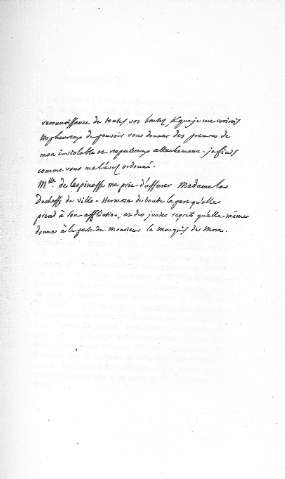 reconnoissance de toutes vos bontés, et que je me croirois
trop heureux de pouvoir vous donner des preuves de
mon inviolable et respectueux attachement. je finis
comme vous me l'avés ordonné.
Mlle de Lespinasse me prie d'assurer Madame la
Duchesse de toute la part qu'elle
prend à son affliction, et des justes regrets qu'elle même
donne à la perte de monsieur le marquis de